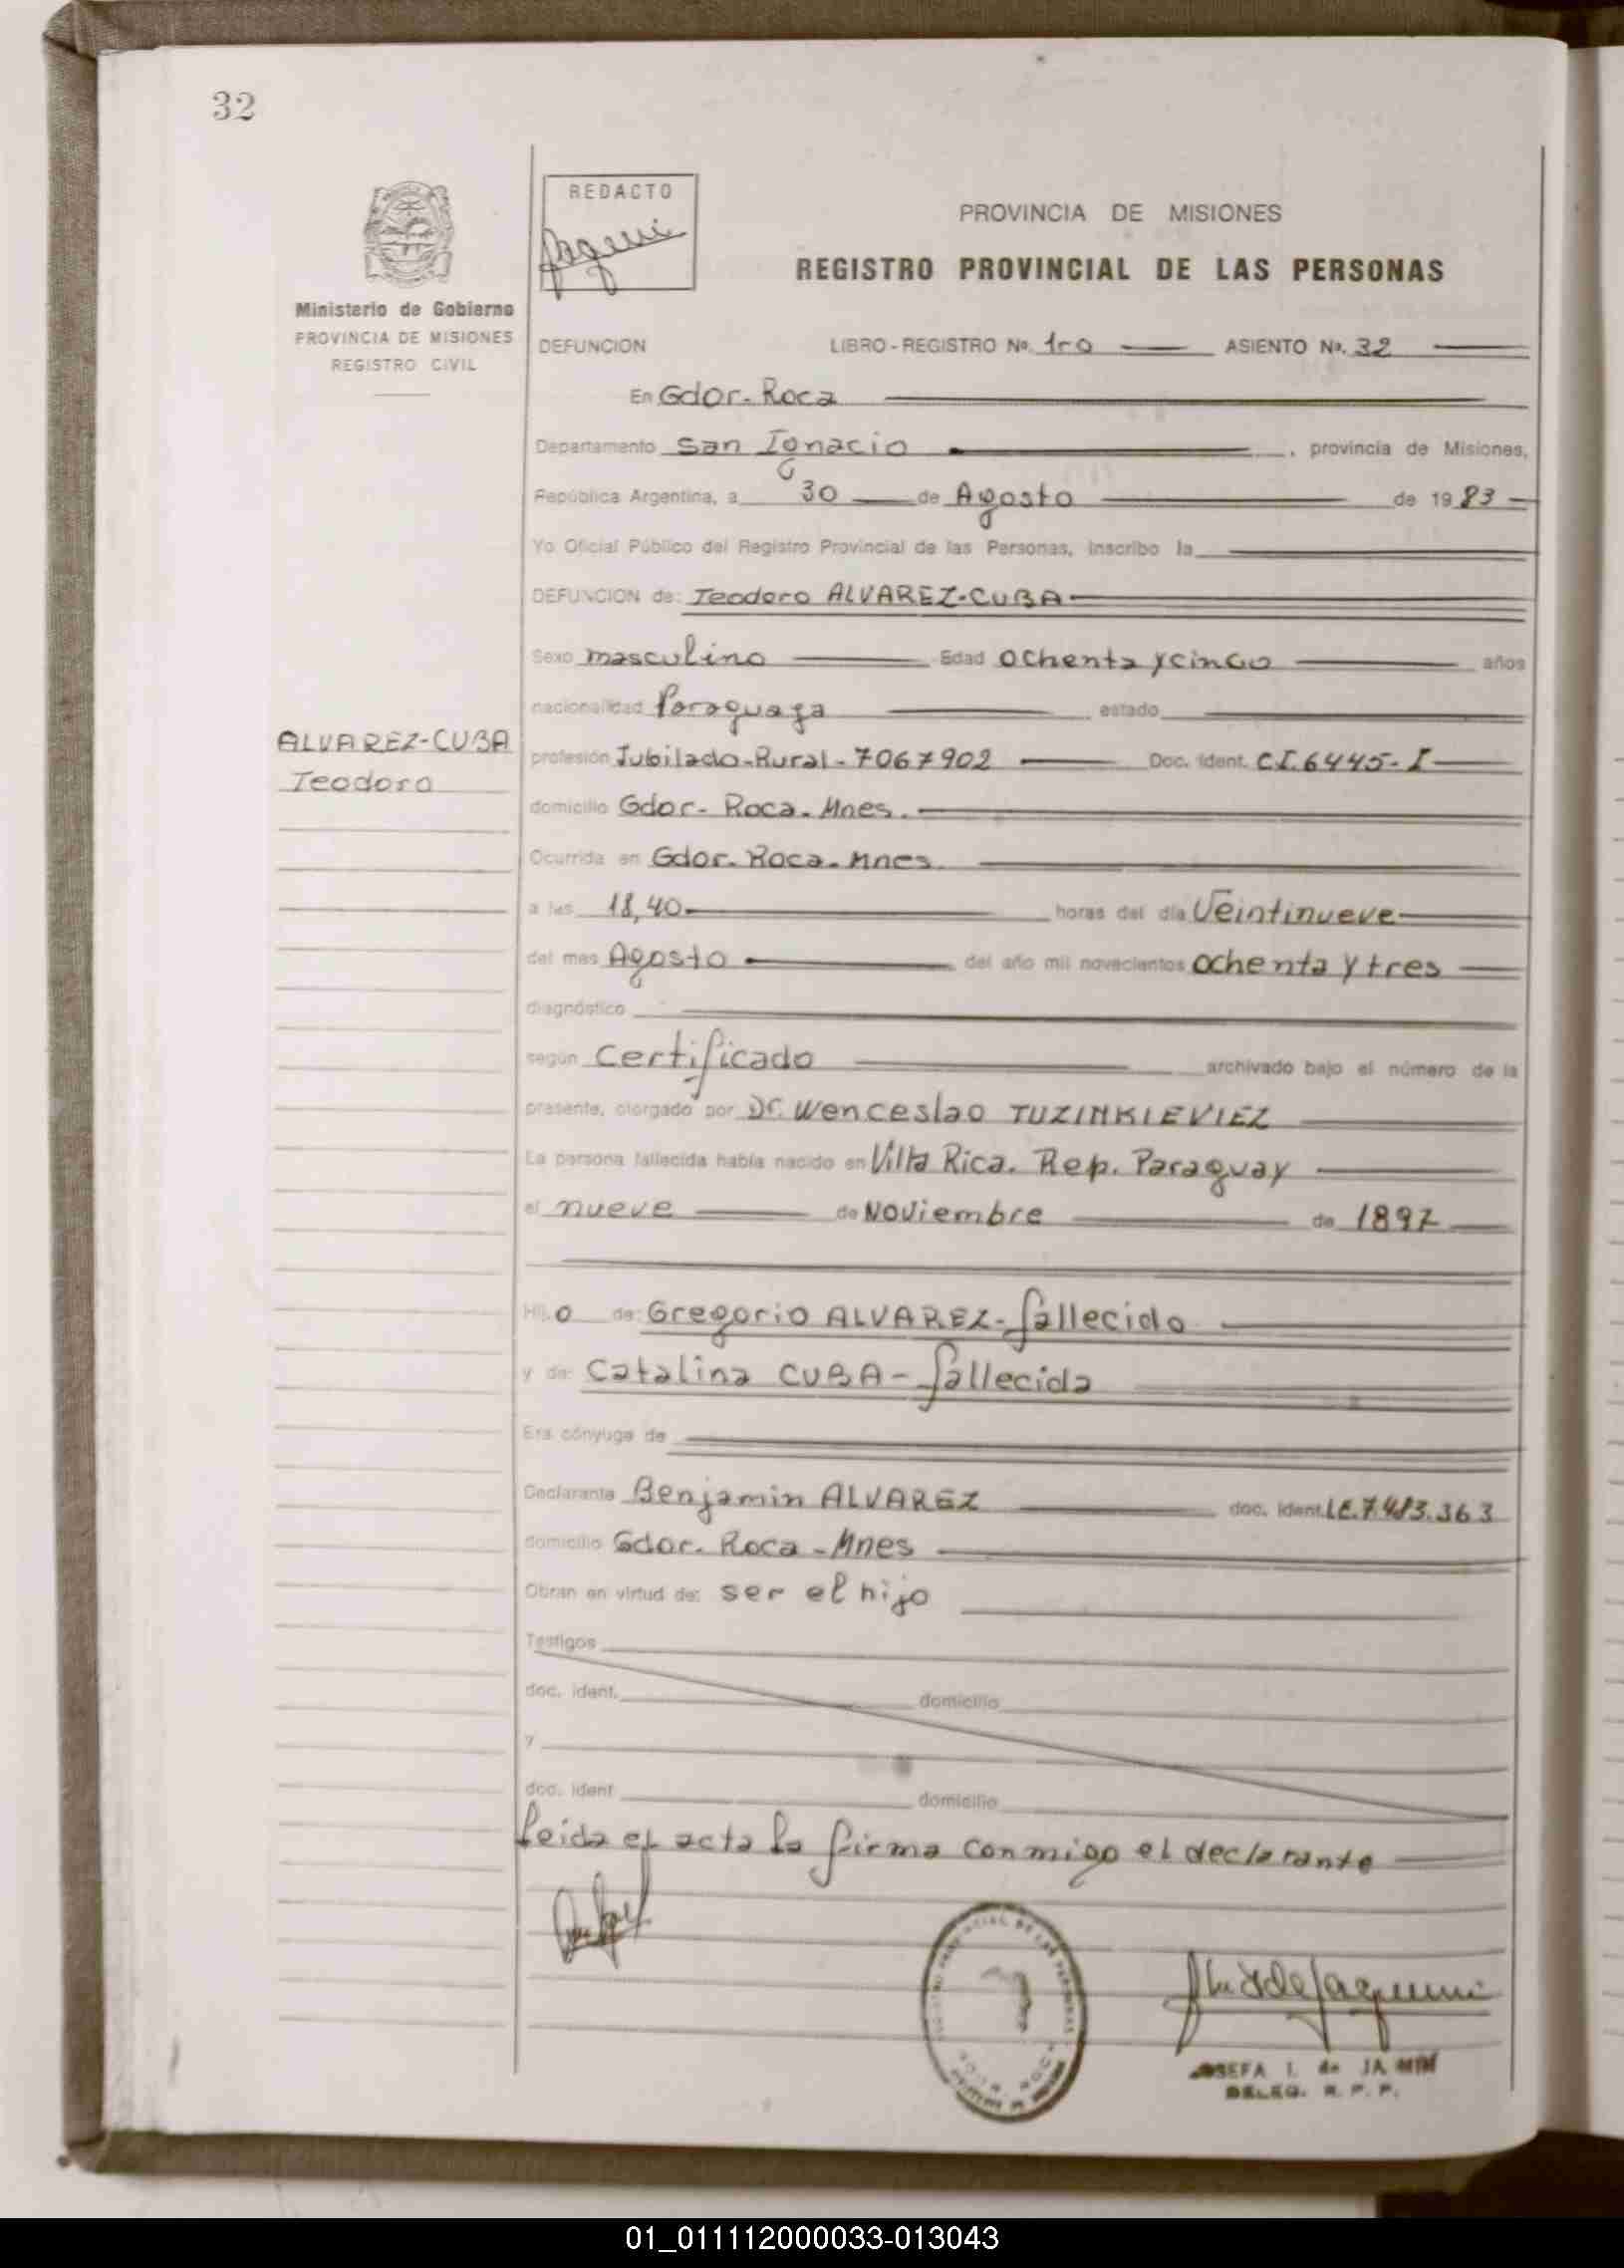 32
REDACTO
Ministerio de Gobierno
PROVINCIA DE MISIONES
REGISTRO CIVIL
PROVINCIA DE MISIONES
REGISTRO PROVINCIAL DE LAS PERSONAS
DEFUNCION LIBRO-REGISTRO No. 1ro ASIENTO No. 32
En Gdor. Roca
Departamento San Ignacio , provincia de Misiones,
República Argentina, a 30 de Agosto de 1983
Yo Oficial Público del Registro Provincial de las Personas, inscribo la
DEFUNCION de: Teodoro ALVAREZ-CUBA
Sexo masculino Edad ochenta y cinco años
nacionalidad Paraguaya estado
ALVAREZ-CUBA
Teodoro
profesión Jubilado-Rural-7067902 Doc. Ident. C.I. 6445-I
domicilio Gdor- Roca. Mnes.
Ocurrida en Gdor. Roca. Mnes
a las 18,40 horas del día Veintinueve
del mes Agosto del año mil novecientos ochenta y tres
diagnóstico
según Certificado archivado bajo el número de la
presente, otorgado por Dr. Wenceslao TUZINKIEVIEZ
La persona fallecida había nacido en Villa Rica. Rep. Paraguay
el nueve de Noviembre de 1897
Hijo de: Gregorio ALVAREZ- fallecido
y de: Catalina CUBA- fallecida
Era cónyuge de
Declarante Benjamin ALVAREZ doc. ident. LE. 7.483.363
domicilio Gdor. Roca - Mnes
Obran en virtud de: ser el hijo
Testigos
doc. ident. domicilio
y
doc. ident domicilio
Leida el acta la firma conmigo el declarante
DELEG. R. P. P.
01_011112000033-013043